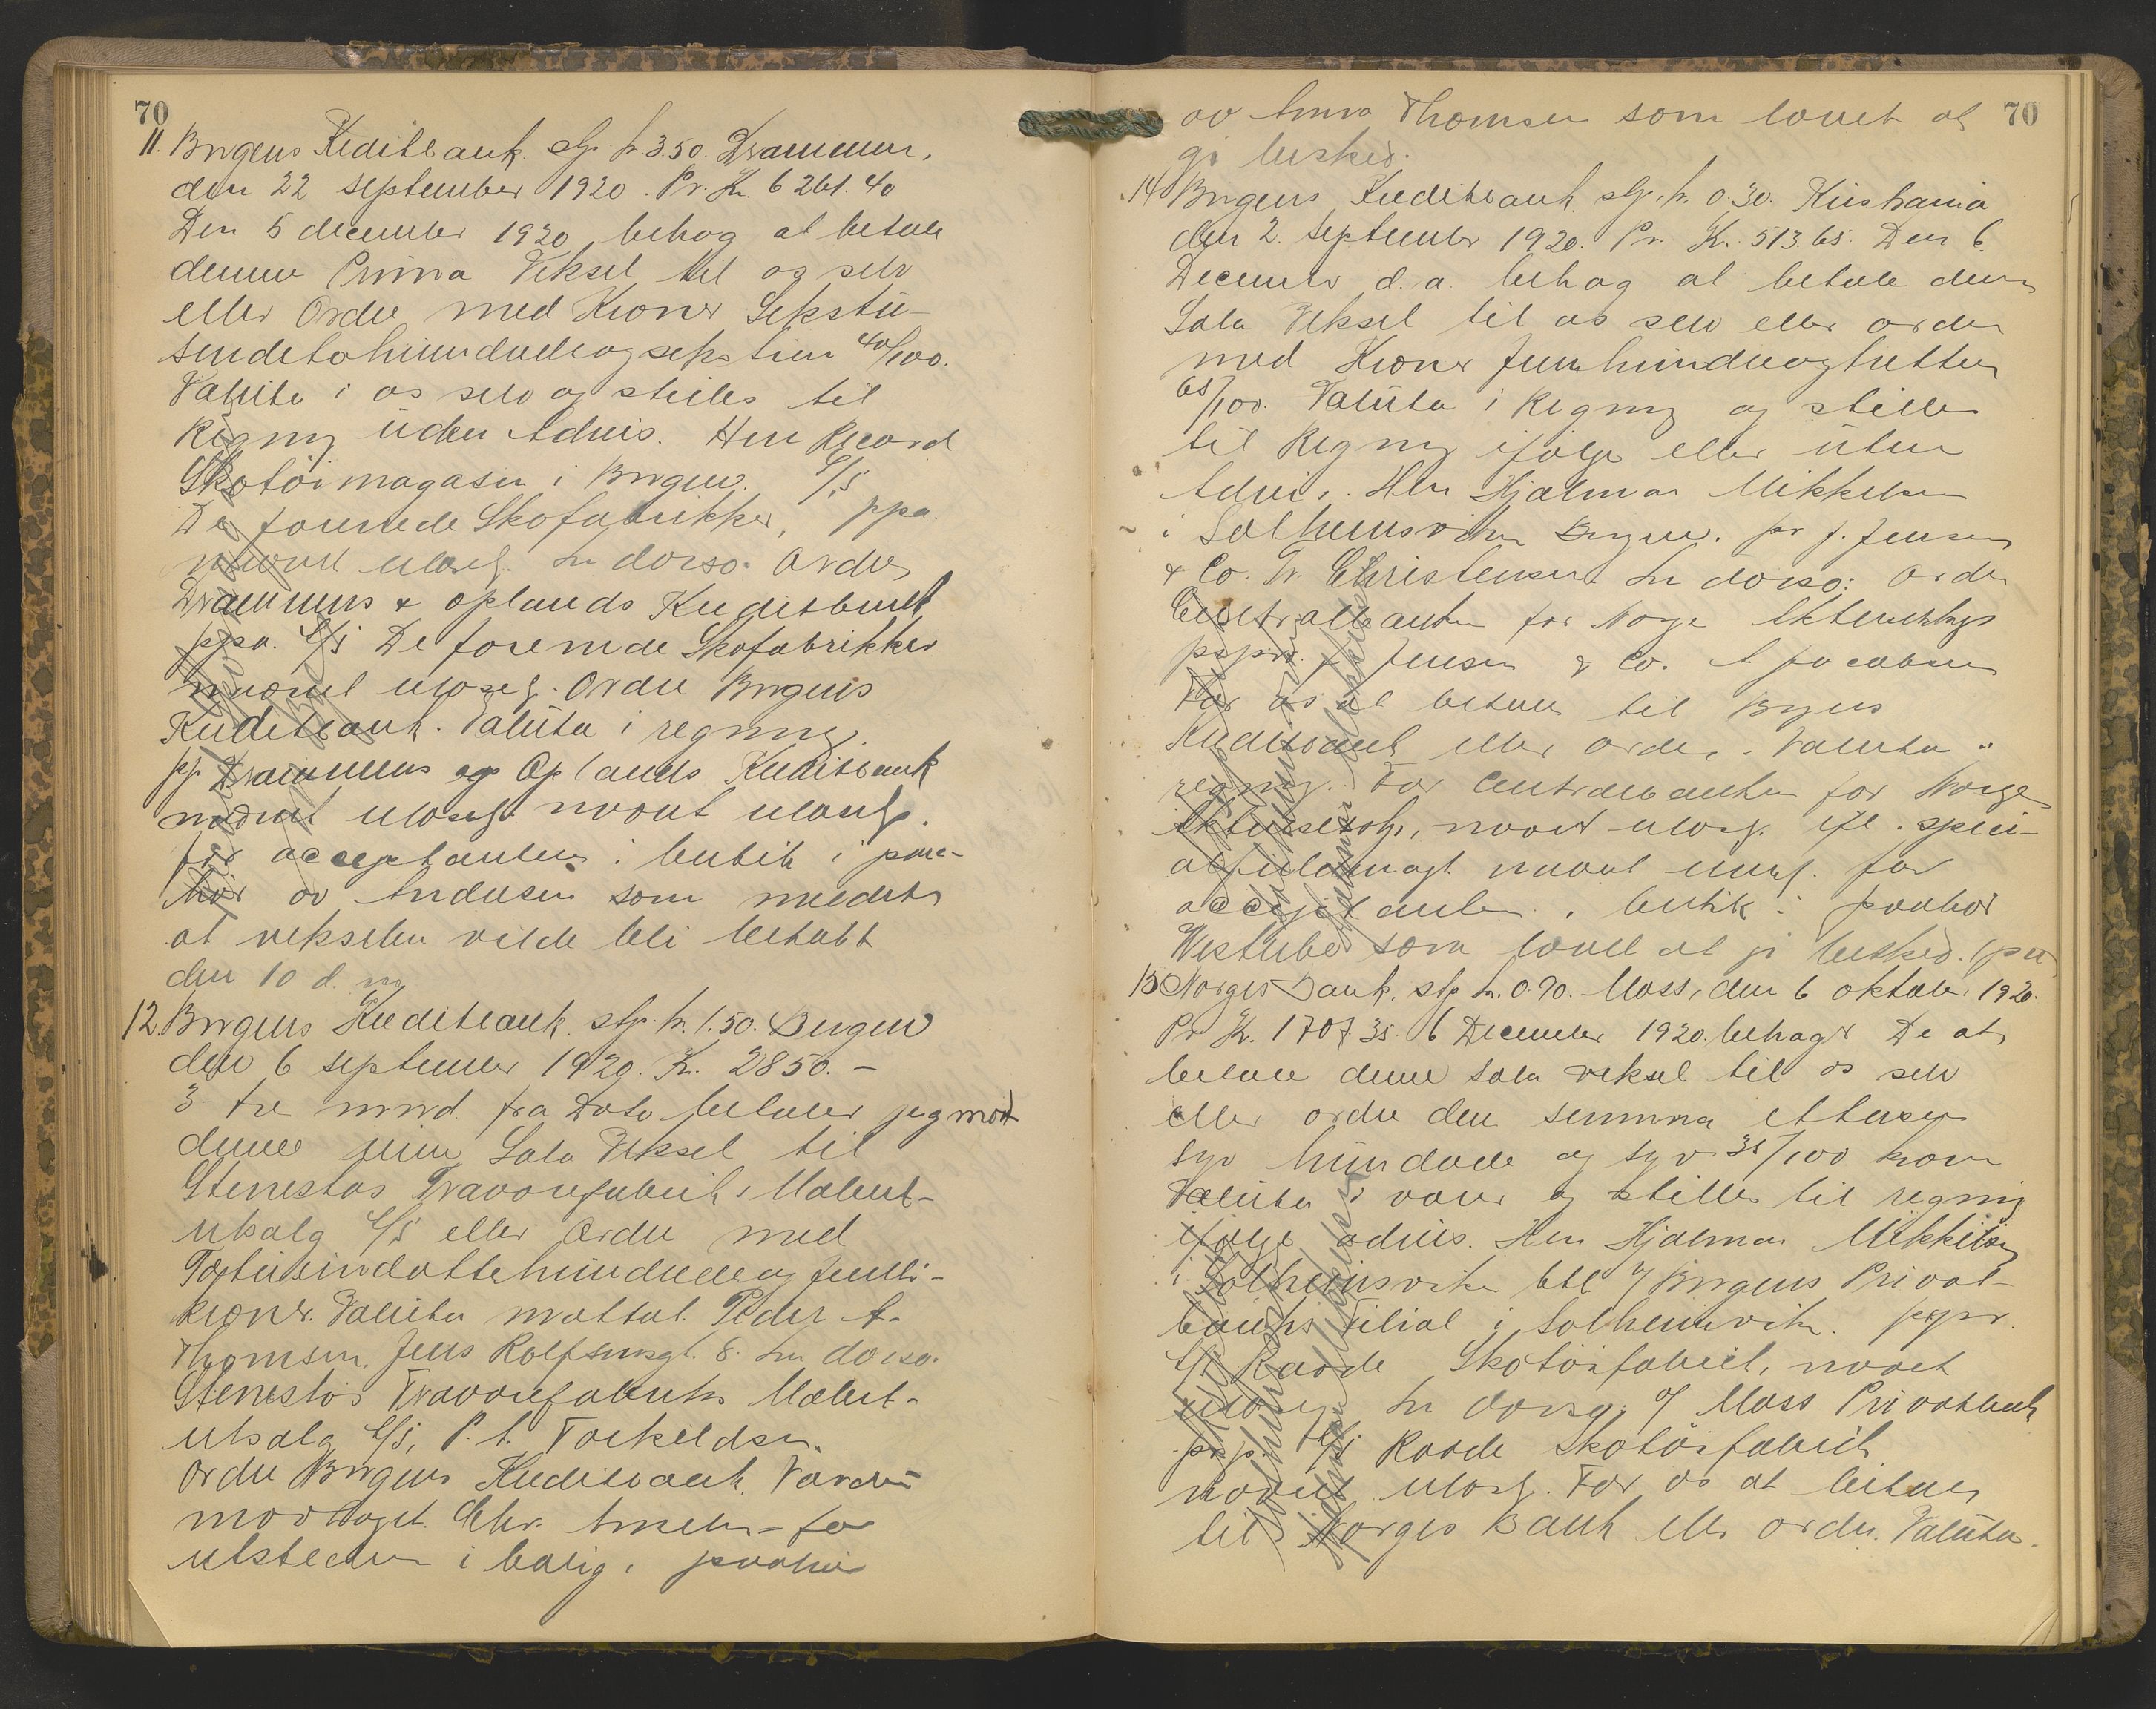 70
11. Bergens Kreditbank. stp. kr. 3.50. Drammen,
den 22 september 1920. Pr. Kr. 6261.40
Den 5 december 1920 behag at betale
denne Prima Veksel til os selv
eller Ordre med Kroner Sekstu-
sendetohundredeogseksti en 40/100.
Valuta i os selv og stilles til
Regning uden Advis. Herr Record
Skotøimagasin i Bergen. A/S
De forenede Skofabrikker, ppa.
navnet ulæsel. In dorso. Ordre
Drammens & Oplands Kreditbank
ppa. A/S De forenede Skofabrikker
navnet ulæsel. Ordre Bergens
Kreditbank. Valuta i regning.
pp Drammens og Oplands Kreditbank
navnet ulæsel. navnt ulæsel.
for acceptanten i butik i paa-
hør av Andersen som meldte
at vekselen vilde bli betalt
den 10 d. m.
12. Bergens Kreditbank. stp. kr. 1.50. Bergen
den 6 september 1920. Kr. 2850.-
3 tre mnd. fra Dato betaler jeg mot
denne min Sola Veksel til
Stenestøs Trævarefabrik, Møbel-
utsalg A/S eller Ordre med
Totusindottehundredeogfemti-
kroner. Valuta mottat. Peder A.
Thomsen. Jens Rolfsensgt. 8. In dorso.
Stenestøs Trævarefabriks Møbel-
utsalg A/S, P. A. Torkildsen.
Ordre Bergens Kreditbank. Værdi
mottaget. Chr. for
utstederen i bolig i paahør
70
av Anna Thomsen som lovet at
gi besked.
14 Bergens Kreditbank. stp. kr. 0.30. Kristiania
den 2. september 1920. Pr. Kr. 513.65. Den 6.
December d. a. behag at betale denne
Sola Veksel til os selv eller ordre
med Kroner Femhundreogtretten
65/100. Valuta i Regning og stilles
til Regning ifølge eller uten
Advis. Herr Hjalmar Mikkelsen
i Solheimsviken Bergen. pr J. Jensen
& Co. Tr. Christensen. In dorso: Ordre
Centralbanken for Norge Aktieselskap
pr. pr. J. Jensen & Co. A Jacobsen
For os at betale til Bergens
Kreditbank eller ordre. Valuta i
regning. For Centralbanken for Norge
Aktieselskap, navnet ulæsel. ifl. speci-
alfuldmagt navnet ulæsel. for
acceptanten i butik i paahør
som lovet at gi besked.
15 Norges Bank. stp kr. 0.90. Moss, den 6 oktober 1920.
Pr Kr. 1707.35. 6 December 1920. behager De at
betale denne sola veksel til os selv
eller ordre den summa
syv hundrede og syv 35/100 kroner
Valuta i varer og stilles til regning
ifølge advis. Herr Hjalmar Mikkelsen
i Solheimsviken btl. A/S Bergens Privat-
banks Filial i Solheimsviken. pr pr.
A/S Raade Skotøifabrik, navnet
ulæsel. In dorso: A/S Moss Privatbank
pr. pr. A/S Raade Skotøifabrik
navnet ulæsel. For os at betales
til Norges Bank eller ordre. Valuta